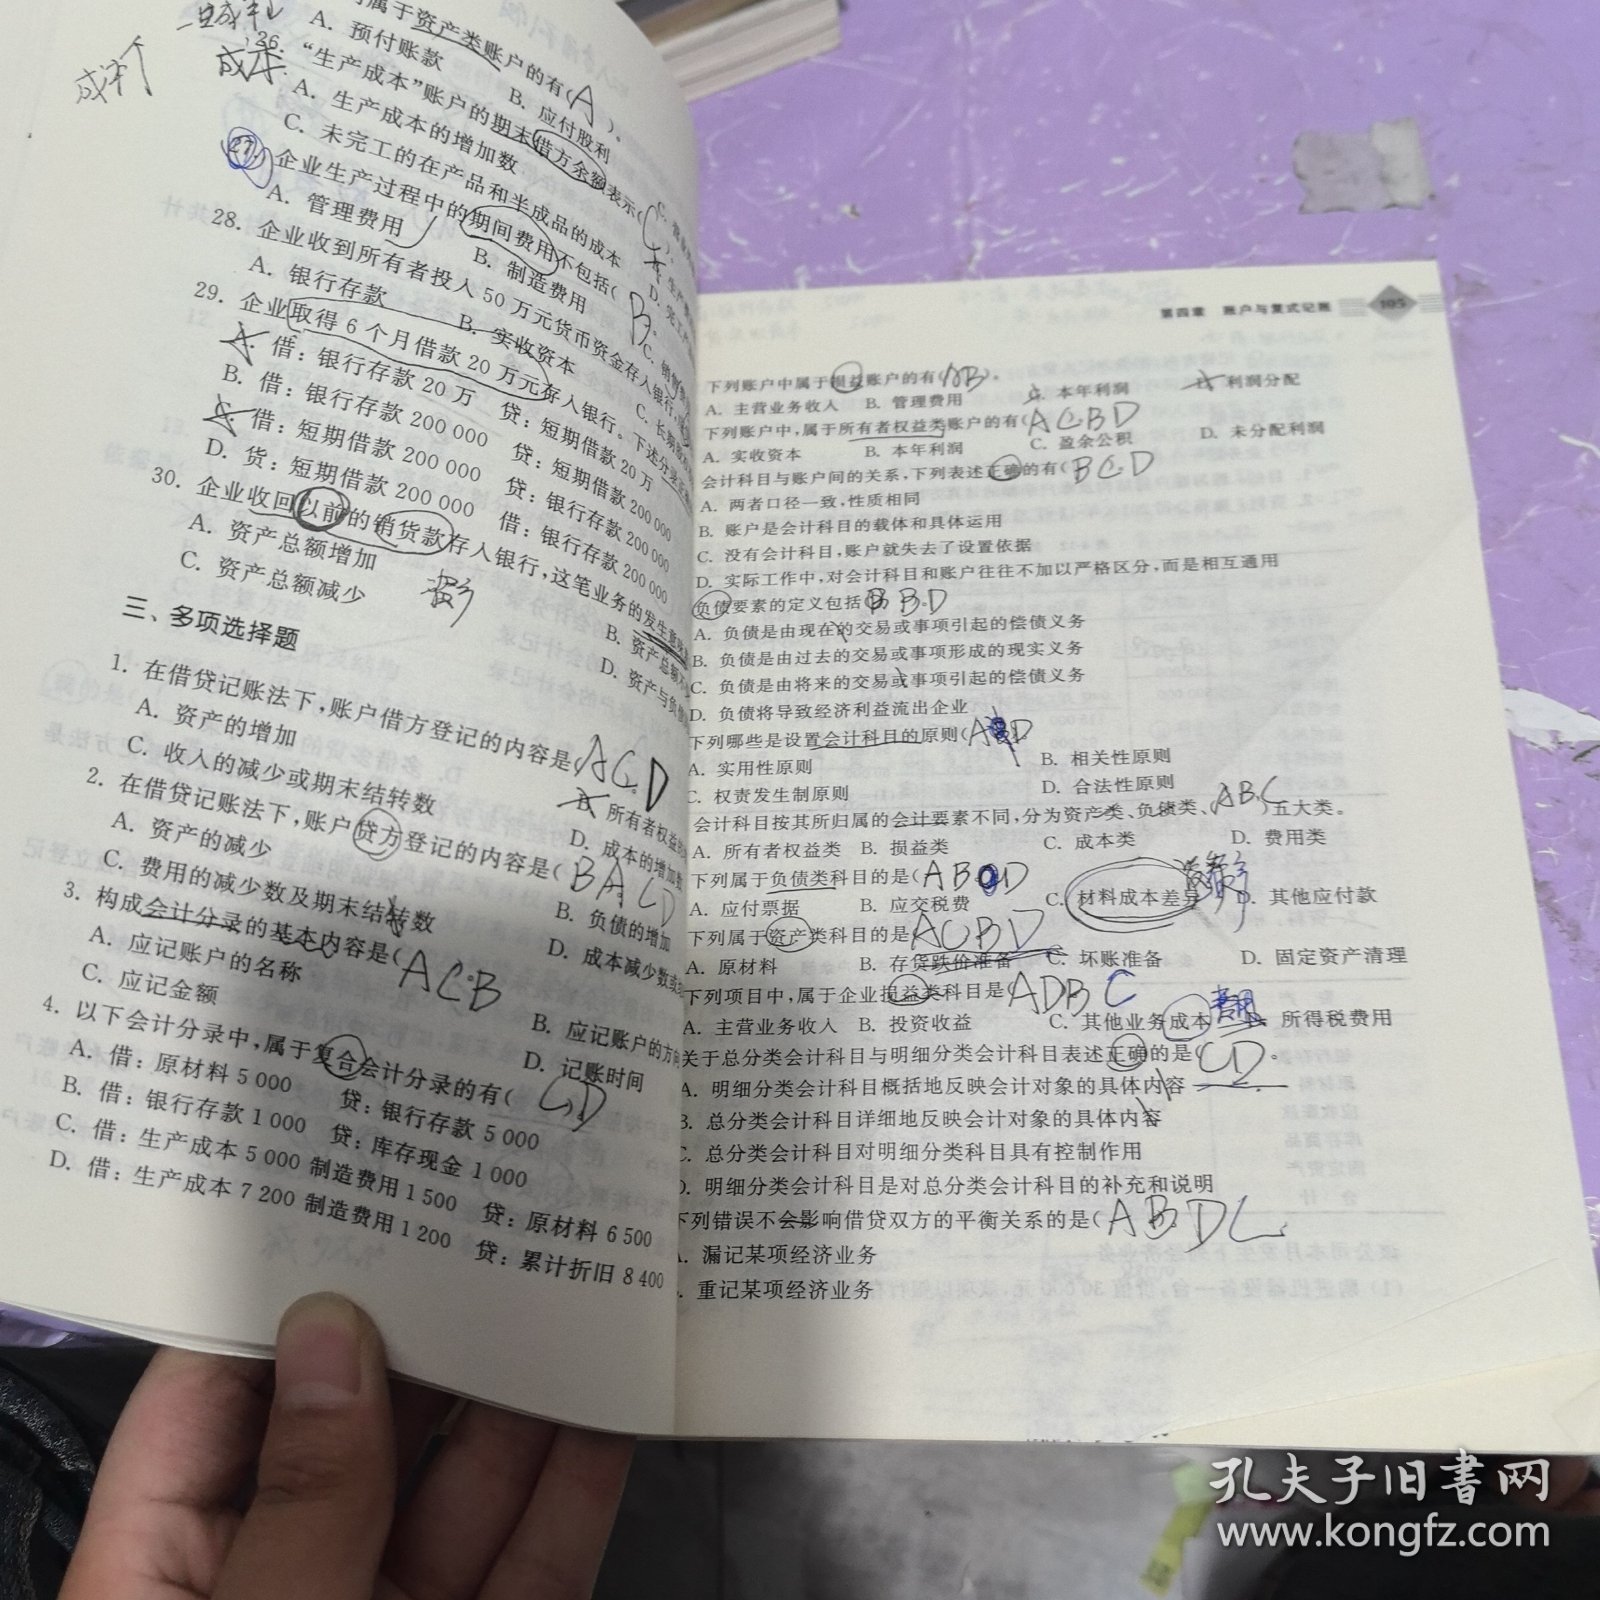 属于资产类账户的有(A)。
A. 预付账款 B. 应付股利
成本
26. “生产成本”账户的期末借方余额表示(C
A. 生产成本的增加数
C. 未完工的在产品和半成品的成本
27. 企业生产过程中的期间费用不包括(B)。
A. 管理费用 B. 制造费用
28. 企业收到所有者投入50万元货币资金存入银行,
A. 银行存款 B. 实收资本
29. 企业取得6个月借款20万元存入银行。下述分录正确
A. 借：银行存款20万 贷：短期借款20万
B. 借：银行存款200 000 贷：短期借款200 000
C. 借：短期借款200 000 贷：银行存款200 000
D. 货：短期借款200 000 借：银行存款200 000
30. 企业收回以前的销货款存入银行,这笔业务的发生意味
A. 资产总额增加 B. 资产总额不
C. 资产总额减少 D. 资产与负债
三、多项选择题
1. 在借贷记账法下,账户借方登记的内容是(ACD
A. 资产的增加 B. 所有者权益的
C. 收入的减少或期末结转数 D. 成本的增加数
2. 在借贷记账法下,账户贷方登记的内容是(BACD
A. 资产的减少 B. 负债的增加
C. 费用的减少数及期末结转数 D. 成本减少数或
3. 构成会计分录的基本内容是(ACB
A. 应记账户的名称 B. 应记账户的方向
C. 应记金额 D. 记账时间
4. 以下会计分录中,属于复合会计分录的有(CD
A. 借：原材料5 000 贷：银行存款5 000
B. 借：银行存款1 000 贷：库存现金1 000
C. 借：生产成本5 000 制造费用1 500 贷：原材料6 500
D. 借：生产成本7 200 制造费用1 200 贷：累计折旧8 400
第四章 账户与复式记账 105
下列账户中属于损益账户的有(AB)。
A. 主营业务收入 B. 管理费用 C. 本年利润 D. 利润分配
下列账户中,属于所有者权益类账户的有(ACBD
A. 实收资本 B. 本年利润 C. 盈余公积 D. 未分配利润
会计科目与账户间的关系,下列表述正确的有(BCD
A. 两者口径一致,性质相同
B. 账户是会计科目的载体和具体运用
C. 没有会计科目,账户就失去了设置依据
D. 实际工作中,对会计科目和账户往往不加以严格区分,而是相互通用
负债要素的定义包括(B BD
A. 负债是由现在的交易或事项引起的偿债义务
B. 负债是由过去的交易或事项形成的现实义务
C. 负债是由将来的交易或事项引起的偿债义务
D. 负债将导致经济利益流出企业
下列哪些是设置会计科目的原则(ABD
A. 实用性原则 B. 相关性原则
C. 权责发生制原则 D. 合法性原则
会计科目按其所归属的会计要素不同,分为资产类、负债类、ABC五大类。
A. 所有者权益类 B. 损益类 C. 成本类 D. 费用类
下列属于负债类科目的是(ABD
A. 应付票据 B. 应交税费 C. 材料成本差异 D. 其他应付款
下列属于资产类科目的是ACBD
A. 原材料 B. 存货跌价准备 C. 坏账准备 D. 固定资产清理
下列项目中,属于企业损益类科目是(ADBC
A. 主营业务收入 B. 投资收益 C. 其他业务成本 所得税费用
关于总分类会计科目与明细分类会计科目表述正确的是(CD。
A. 明细分类会计科目概括地反映会计对象的具体内容
B. 总分类会计科目详细地反映会计对象的具体内容
C. 总分类会计科目对明细分类科目具有控制作用
D. 明细分类会计科目是对总分类会计科目的补充和说明
下列错误不会影响借贷双方的平衡关系的是(ABDC
A. 漏记某项经济业务
重记某项经济业务
孔夫子旧书网
www.kongfz.com